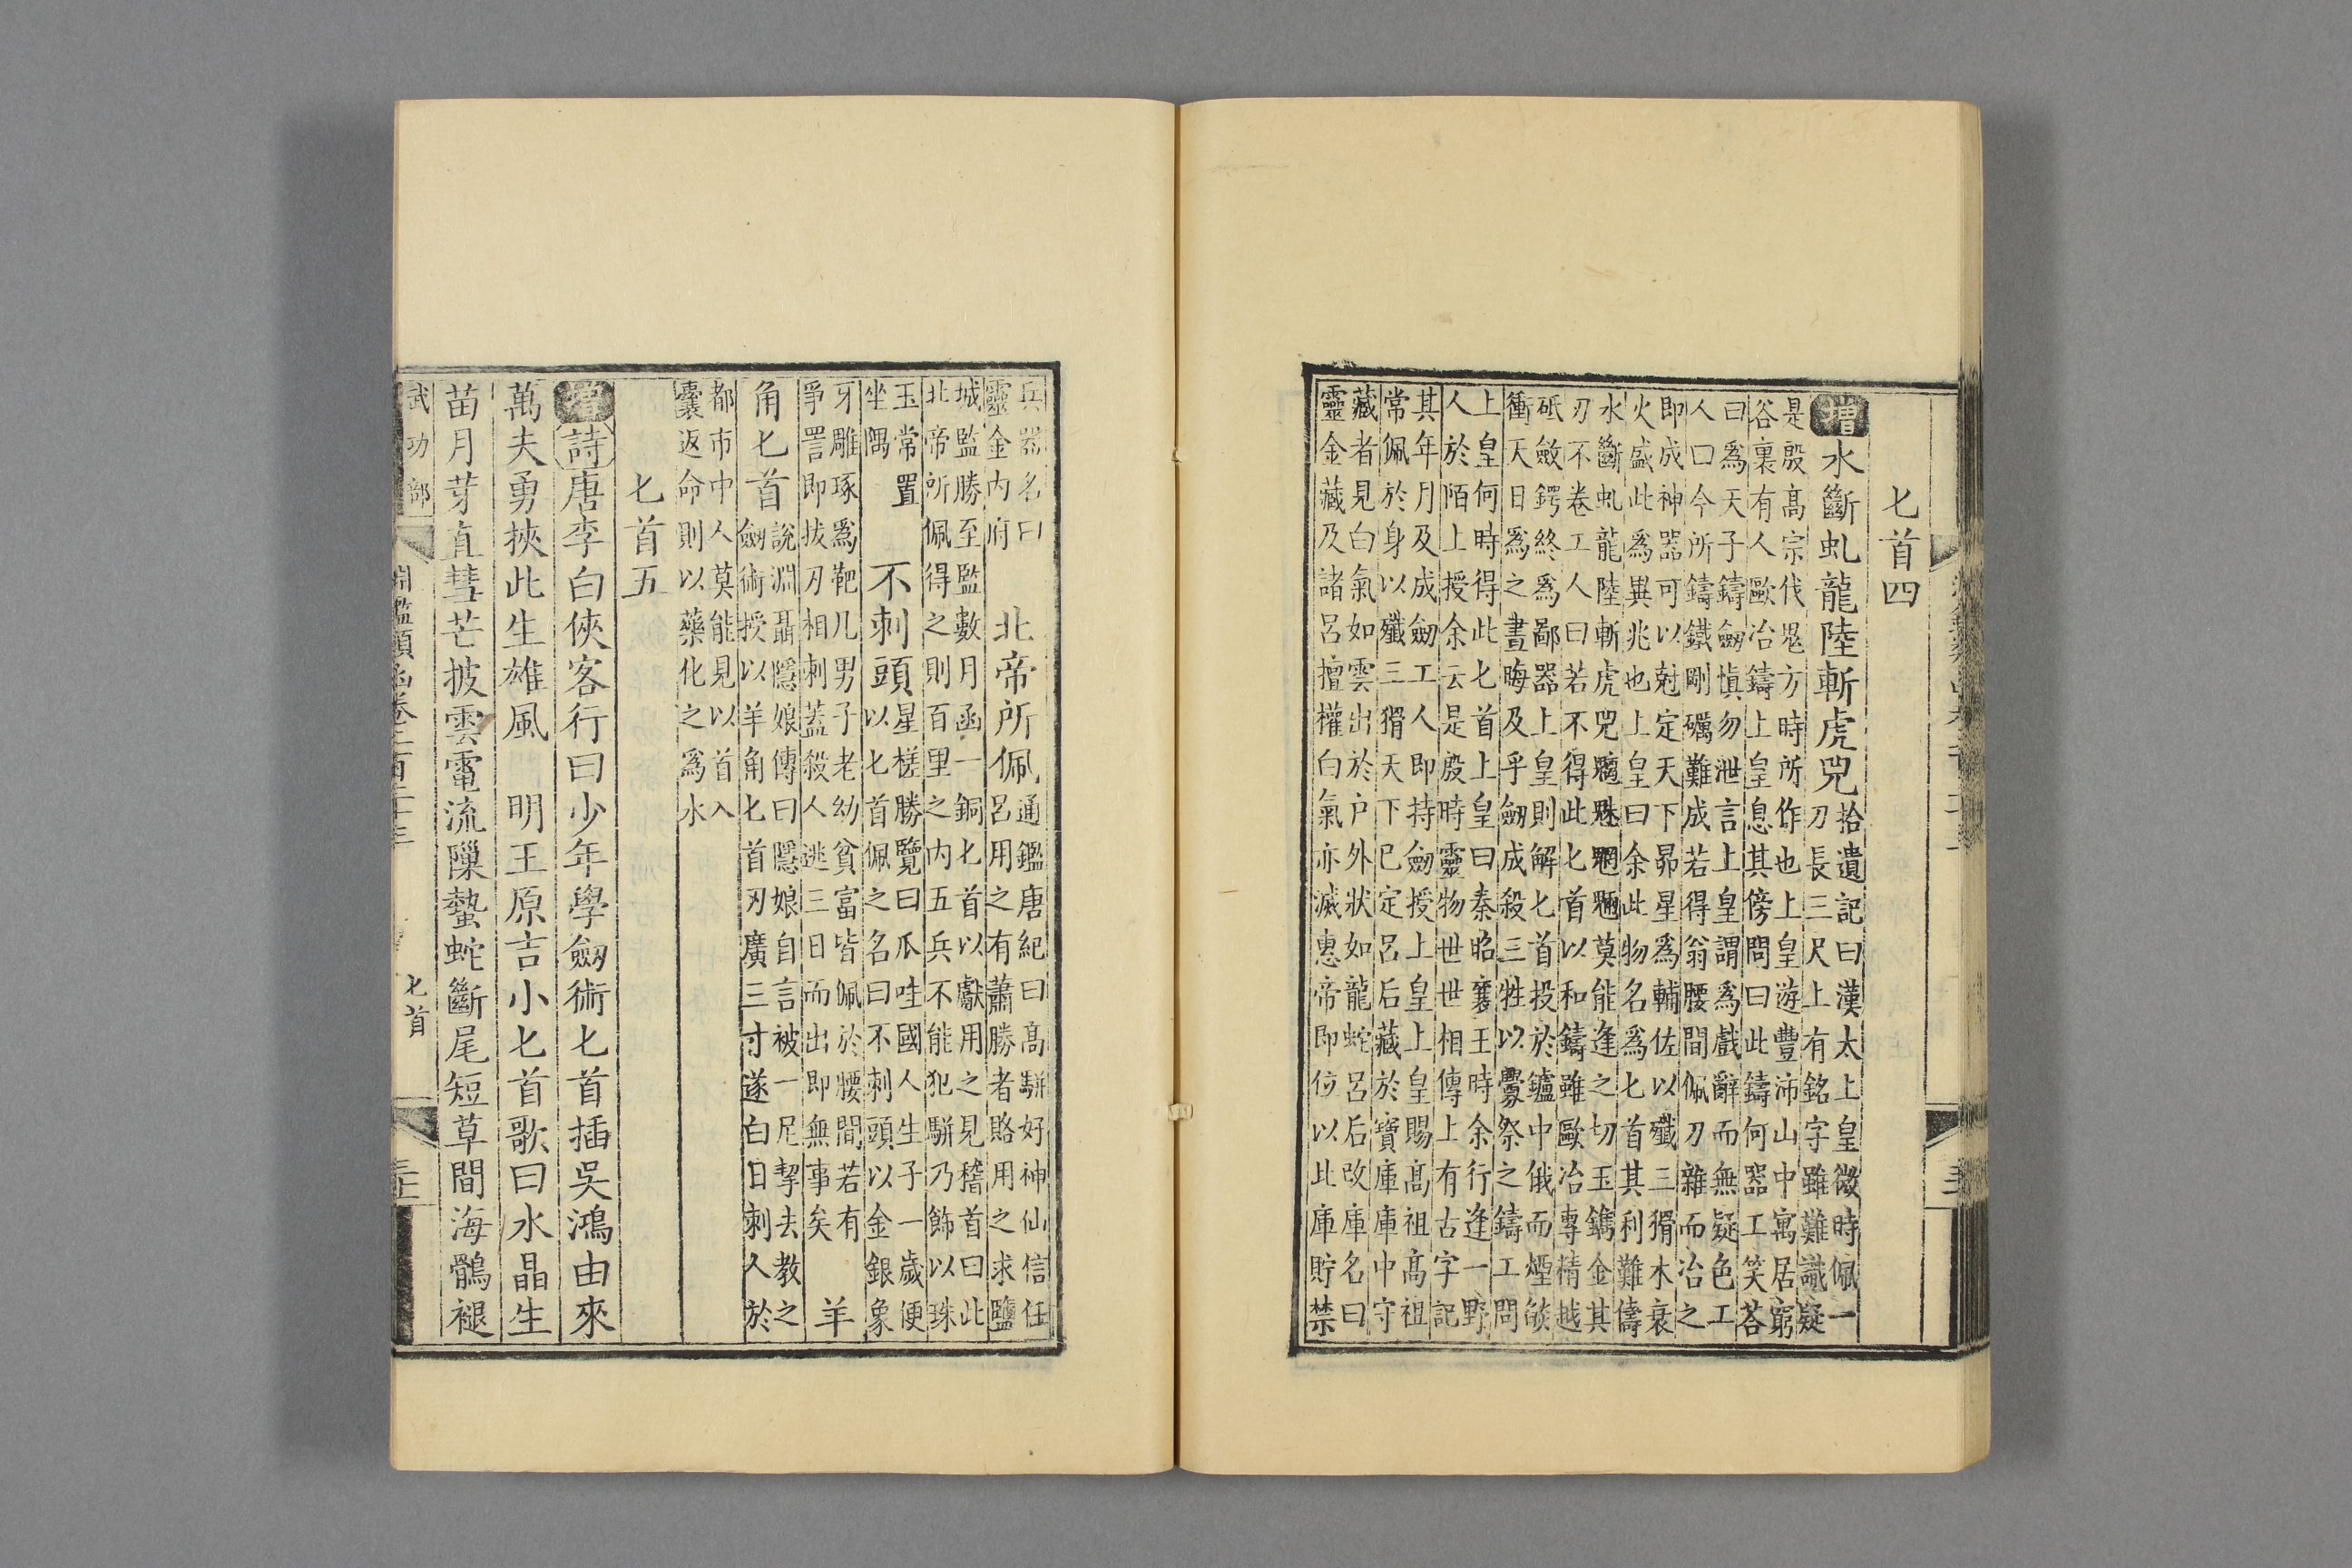 匕首四
增水斷虬龍陸斬虎兕
拾遺記曰漢太上皇微時佩一
刀長三尺上有銘字雖難識疑
是殷高宗伐鬼方時所作也上皇遊豐沛山中寓居窮
谷裏有人歐冶鑄上皇息其傍問曰此鑄何器工笑荅
曰爲天子鑄劒慎勿泄言上皇謂爲戲辭而無疑色工
人曰今所鑄鐵剛礪難成若得翁腰間佩刀雜而冶之
即成神器可以尅定天下昴星爲輔佐以殲三猾木衰
火盛此爲異兆也上皇曰余此物名爲匕首其利難儔
水斷虬龍陸斬虎兕魑魅魍魎莫能逢之切玉鐫金其
刃不卷工人曰若不得此匕首以和鑄雖歐冶專精越
砥斂鍔終爲鄙器上皇則解匕首投於鑪中俄而煙燄
衝天日爲之晝晦及乎劒成殺三牲以釁祭之鑄工問
上皇何時得此匕首上皇曰秦昭襄王時余行逢一野
人於陌上授余云是殷時靈物世世相傳上有古字記
其年月及成劒工人即持劒授上皇上皇賜高祖高祖
常佩於身以殲三猾天下已定呂后藏於寶庫庫中守
藏者見白氣如雲出於户外狀如龍蛇呂后改庫名曰
靈金藏及諸呂擅權白氣亦滅惠帝即位以此庫貯禁
兵器名曰
靈金内府
北帝所佩
通鑑唐紀曰高駢好神仙信任
呂用之有蕭勝者賂用之求鹽
城監勝至監數月函一銅匕首以獻用之見稽首曰此
北帝所佩得之則百里之内五兵不能犯駢乃飾以珠
玉常置
坐隅
不刺頭
星槎勝覽曰瓜哇國人生子一歲便
以匕首佩之名曰不刺頭以金銀象
牙雕琢爲靶凡男子老幼貧富皆佩於腰間若有
爭詈即拔刃相刺蓋殺人逃三日而出即無事矣
羊
角匕首
說淵聶隱娘傳曰隱娘自言被一尼挈去教之
劒術授以羊角匕首刃廣三寸遂白日刺人於
都市中人莫能見以首入
囊返命則以藥化之爲水
匕首五
增詩唐李白俠客行曰少年學劒術匕首插吳鴻由來
萬夫勇挾此生雄風　明王原吉小匕首歌曰水晶生
苗月芽直彗芒披雲電流隟蟄蛇斷尾短草間海鶻褪
武功部
匕首